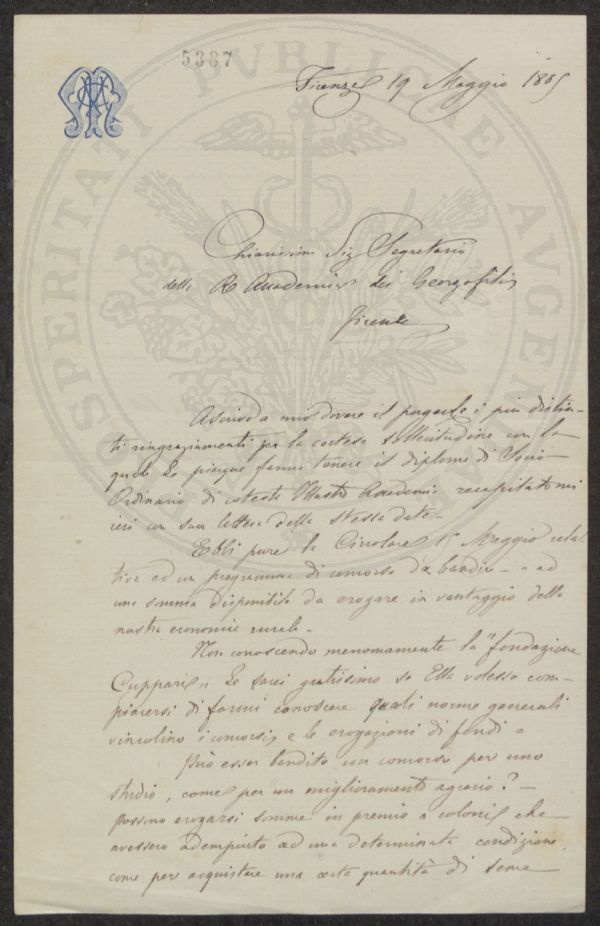 5387
Firenze 19 Maggio 1885
Chiarissimo Sig Segretario
della R Accademia dei Georgofili
Firenze
Ascrivo a mio dovere il porgerle i più distin-
ti ringraziamenti per la cortese sollecitudine con la
quale Le piacque farmi tenere il diploma di Socio
Ordinario di cotesta Illustre Accademia recapitatomi
ieri con sua lettera della stessa data.
Ebbi pure la Circolare 15 Maggio rela
tiva ad un programma di concorso da bandire o ad
una somma disponibile da erogare in vantaggio della
nostra economia rurale.
Non conoscendo menomamente la "fondazione
Cuppari" Le sarei gratissimo se Ella volesse com-
piacersi di farmi conoscere quali norme generali
vincolino i concorsi e le erogazioni di fondi
Può esser bandito un concorso per uno
studio, come per un miglioramento agrario? -
Possono erogarsi somme in premio a coloni che
avessero adempiuto ad una determinata condizione,
come per acquistare una certa quantità di seme
SPERITATI PVBLICAE AVGENDAE